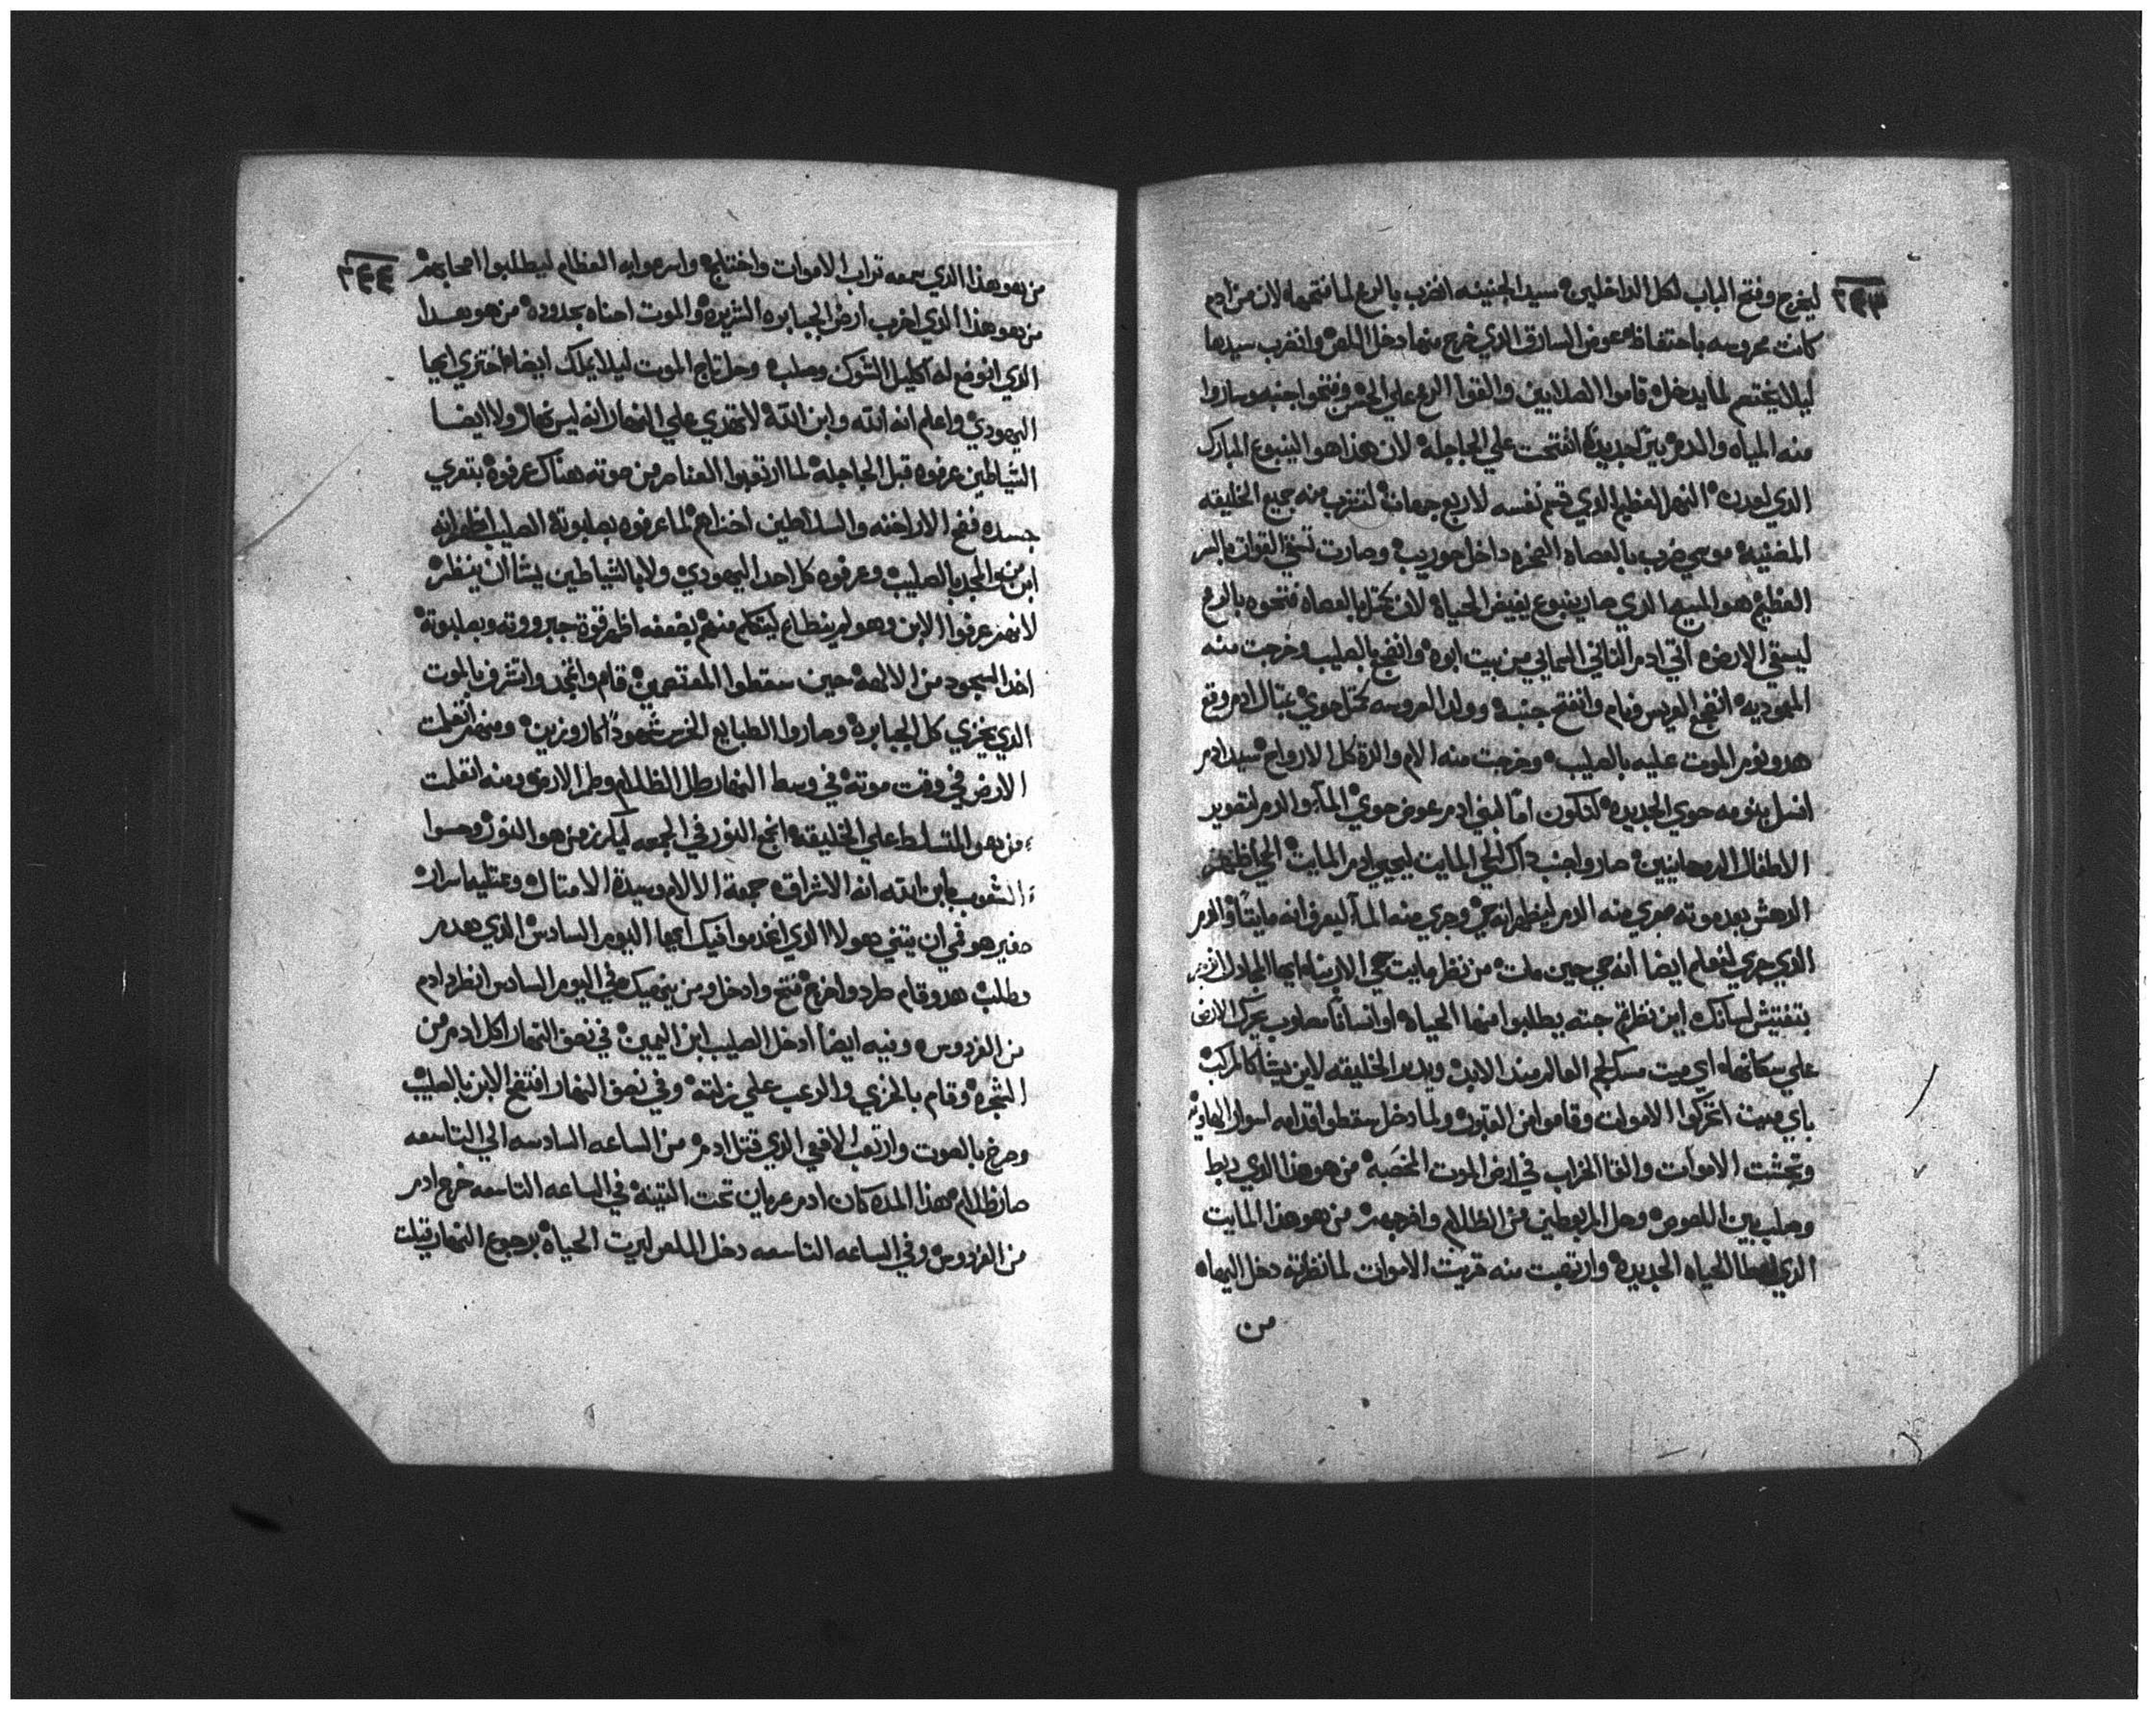 ٣٤٣
ليخرج وفتح الباب لكل الداخلين سيد الجنينه انضرب بالرمح لما فتحها لان من ادم
كانت محروسه باحتفاظ عوض السارق الذي خرج منها دخل اللص وانضرب سيدها
ليلا يختم لما يدخل قاموا الصلابين والقوا الرمح علي الحصن وفتحوا جنبه وساروا
منه المياه والدم بير جديده انفتحت علي الجاجله لان هذا هو الينبوع المبارك
الذي لعدن النهر العظيم الذي قسم نفسه لاربع جهات لتشرب منه جميع الخليقه
المضنيه موسي ضرب بالعصاه الصخره داخل حوريب وصارت تسقي القوات بالسر
العظيم هو المسيح الذي صار ينبوع يفيض الحياه لان بالعصاه فتحوه بالرمح
ليسقي الارض اتي ادم الثاني السماني من بيت ابوه وانضجع بالصليب وخرجت منه
المعموديه انضجع العريس ونام وانفتح جنبه وولد العروسه مثل حوي بمثال ادم وقع
هدو نوم الموت عليه بالصليب وخرجت منه الام والدة كل الارواح سيد ادم
انسل بنومه حوي الجديده لتكون اما لبني ادم عوض حوي المآ والدم لتصوير
الاطفال الروحانيين صاروا جنب ذاك الحي المايت ليحيي ادم المايت الحي اظهر
الدهش بعد موته جري منه الدم ليظهر انه حي وجري منه المآ ليعرف انه مايتا والدم
الذي جري لنعلم ايضا انه حي حين مات من نظر مايت حي الاربتاه ايها المجادل
بتفتيش لسانك اين نظرتم جته يطلبوا منها الحياه او انسانا مصلوب يحرك الارض
علي سكانها اي ميت مسك لجم العالم منذ الابد ويدبر الخليقه لاين يشا كالمركب
باي ميت اتحركوا الاموات وقاموا من القبور ولما دخل سقطوا قدامه اسوار الهاويه
وتجشت الاموات والقا الخراب في ارض الموت المخصبه من هو هذا الذي ربط
وصلب بين اللصوص وحل المربوطين من الظلام واخرجهم من هو هذا المايت
الذي اعطا الحياه الجديده وارتعبت منه قرية الاموات لما نظرته دخل اليها
من
٣٤٤
من هو هذا الذي سمعه تراب الاموات واختلج واسرعوا به العظام ليطلبوا اصحابهم
من هو هذا الذي اخرب ارض الجبابره الشريره والموت احناه بجدوده من هو هدا
الذي انوضع له اكليل الشوك وصلب وحل تاج الموت ليلا يملك ايضا اختزي ايها
اليهودي واعلم انه الله وابن الله لا تهدي علي النهار انه ليس نهار ولا ايضا
الشياطين عرفوه قبل الجاجله لما ارتعبوا العناصر من موته هناك عرفوه بتعري
جسده فضح الاراخنه والسلاطين اخزاهم لما عرفوه بصلبوته الصليب اظهر انه
ابن من والمجد بالصليب وعرفوه كل احد اليهودي ولا بالشياطين يشا ان ينظر
لانهم عرفوا الابن وهو لم ينظام ليتكلم منهم بضعفه اظهر قوة جبرووته وبصلبوته
اخد السجود من الالهه حين سقطوا المغتصبين قام وانجد واتشرف بالموت
الذي يخزي كل الجبابره وصاروا الطبايع الخرس شهودا كاروزين ومنهم اتعلمت
الارض في وقت موته في وسط النهار طل الظلام وطر الارض ومنه اتعلمت
من هو المتسلط علي الخليقه انجح النور في الجمعه ليكرز من هو النور وحسوا
الشعوب بابن الله انه الاشراق جمعة الالام وسيدة الامثال وعتليه اسرار
صغير هو فمي ان يتني هولاا الذي انخدموا فيك ايها اليوم السادس الذي هدم
وطلب هدو وقام طرد واخرج فتح وادخل ومن يتهميك في اليوم السادس انطرد ادم
من الفردوس وبيه ايضا ادخل الصليب ابن اليمين في نصف النهار اكل ادم من
الشجره وقام بالخزي والرعب علي زلته وفي نصف النهار افتضح الابن بالصليب
وصرخ بالصوت وارتعب الافعي الذي قتل ادم من الساعه السادسه الي التاسعه
صار ظلام بهذا المده كان ادم عريان تحت التينه في الساعه التاسعه خرج ادم
من الفردوس وفي الساعه التاسعه دخل اللص لبريت الحياه برجوع النهار قبلت